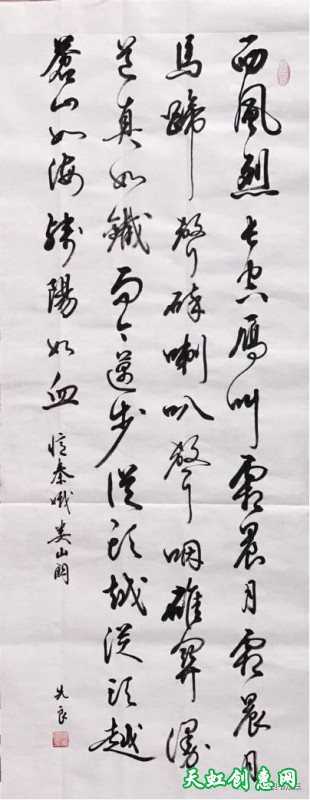 西風烈長空鴈叫霜晨月霜晨月
馬蹄聲碎喇叭聲咽雄關漫
道真如鐵而今邁步從頭越從頭越
蒼山如海殘陽如血
憶秦娥婁山關
先良
天虹创意网